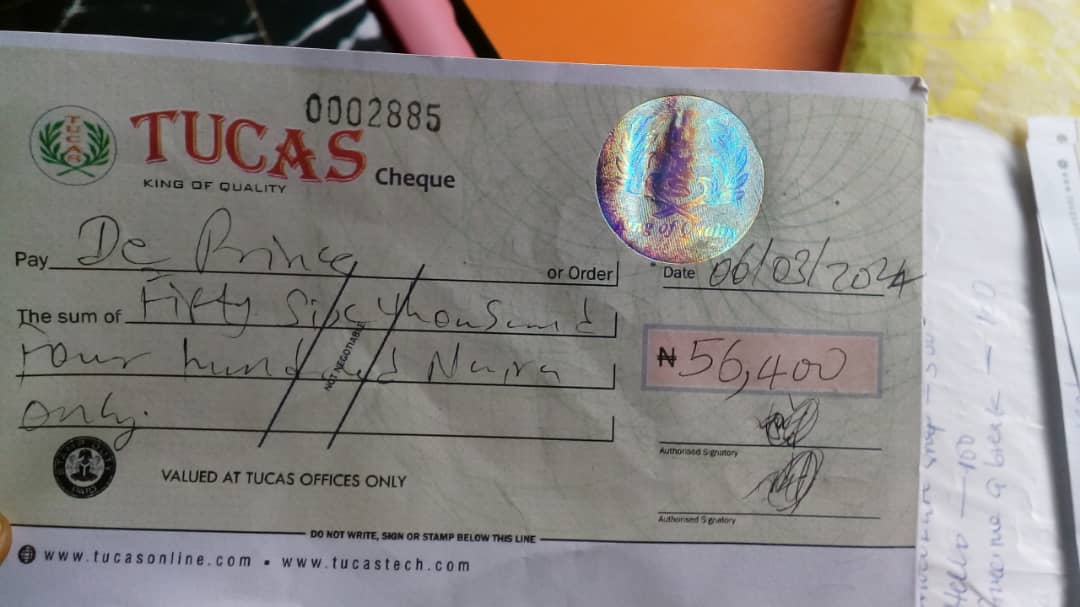 0002885
TUCAS
KING OF QUALITY
Cheque
TUCAS
King of Quality
Pay De Prince or Order
Date 06/03/2024
The sum of Fifty Six thousand
Four hundred Naira
only.
NOT NEGOTIABLE
₦ 56,400
Authorised Signatory
Authorised Signatory
VALUED AT TUCAS OFFICES ONLY
DO NOT WRITE, SIGN OR STAMP BELOW THIS LINE
www.tucasonline.com • www.tucastech.com
Hello — 100
a break — 10